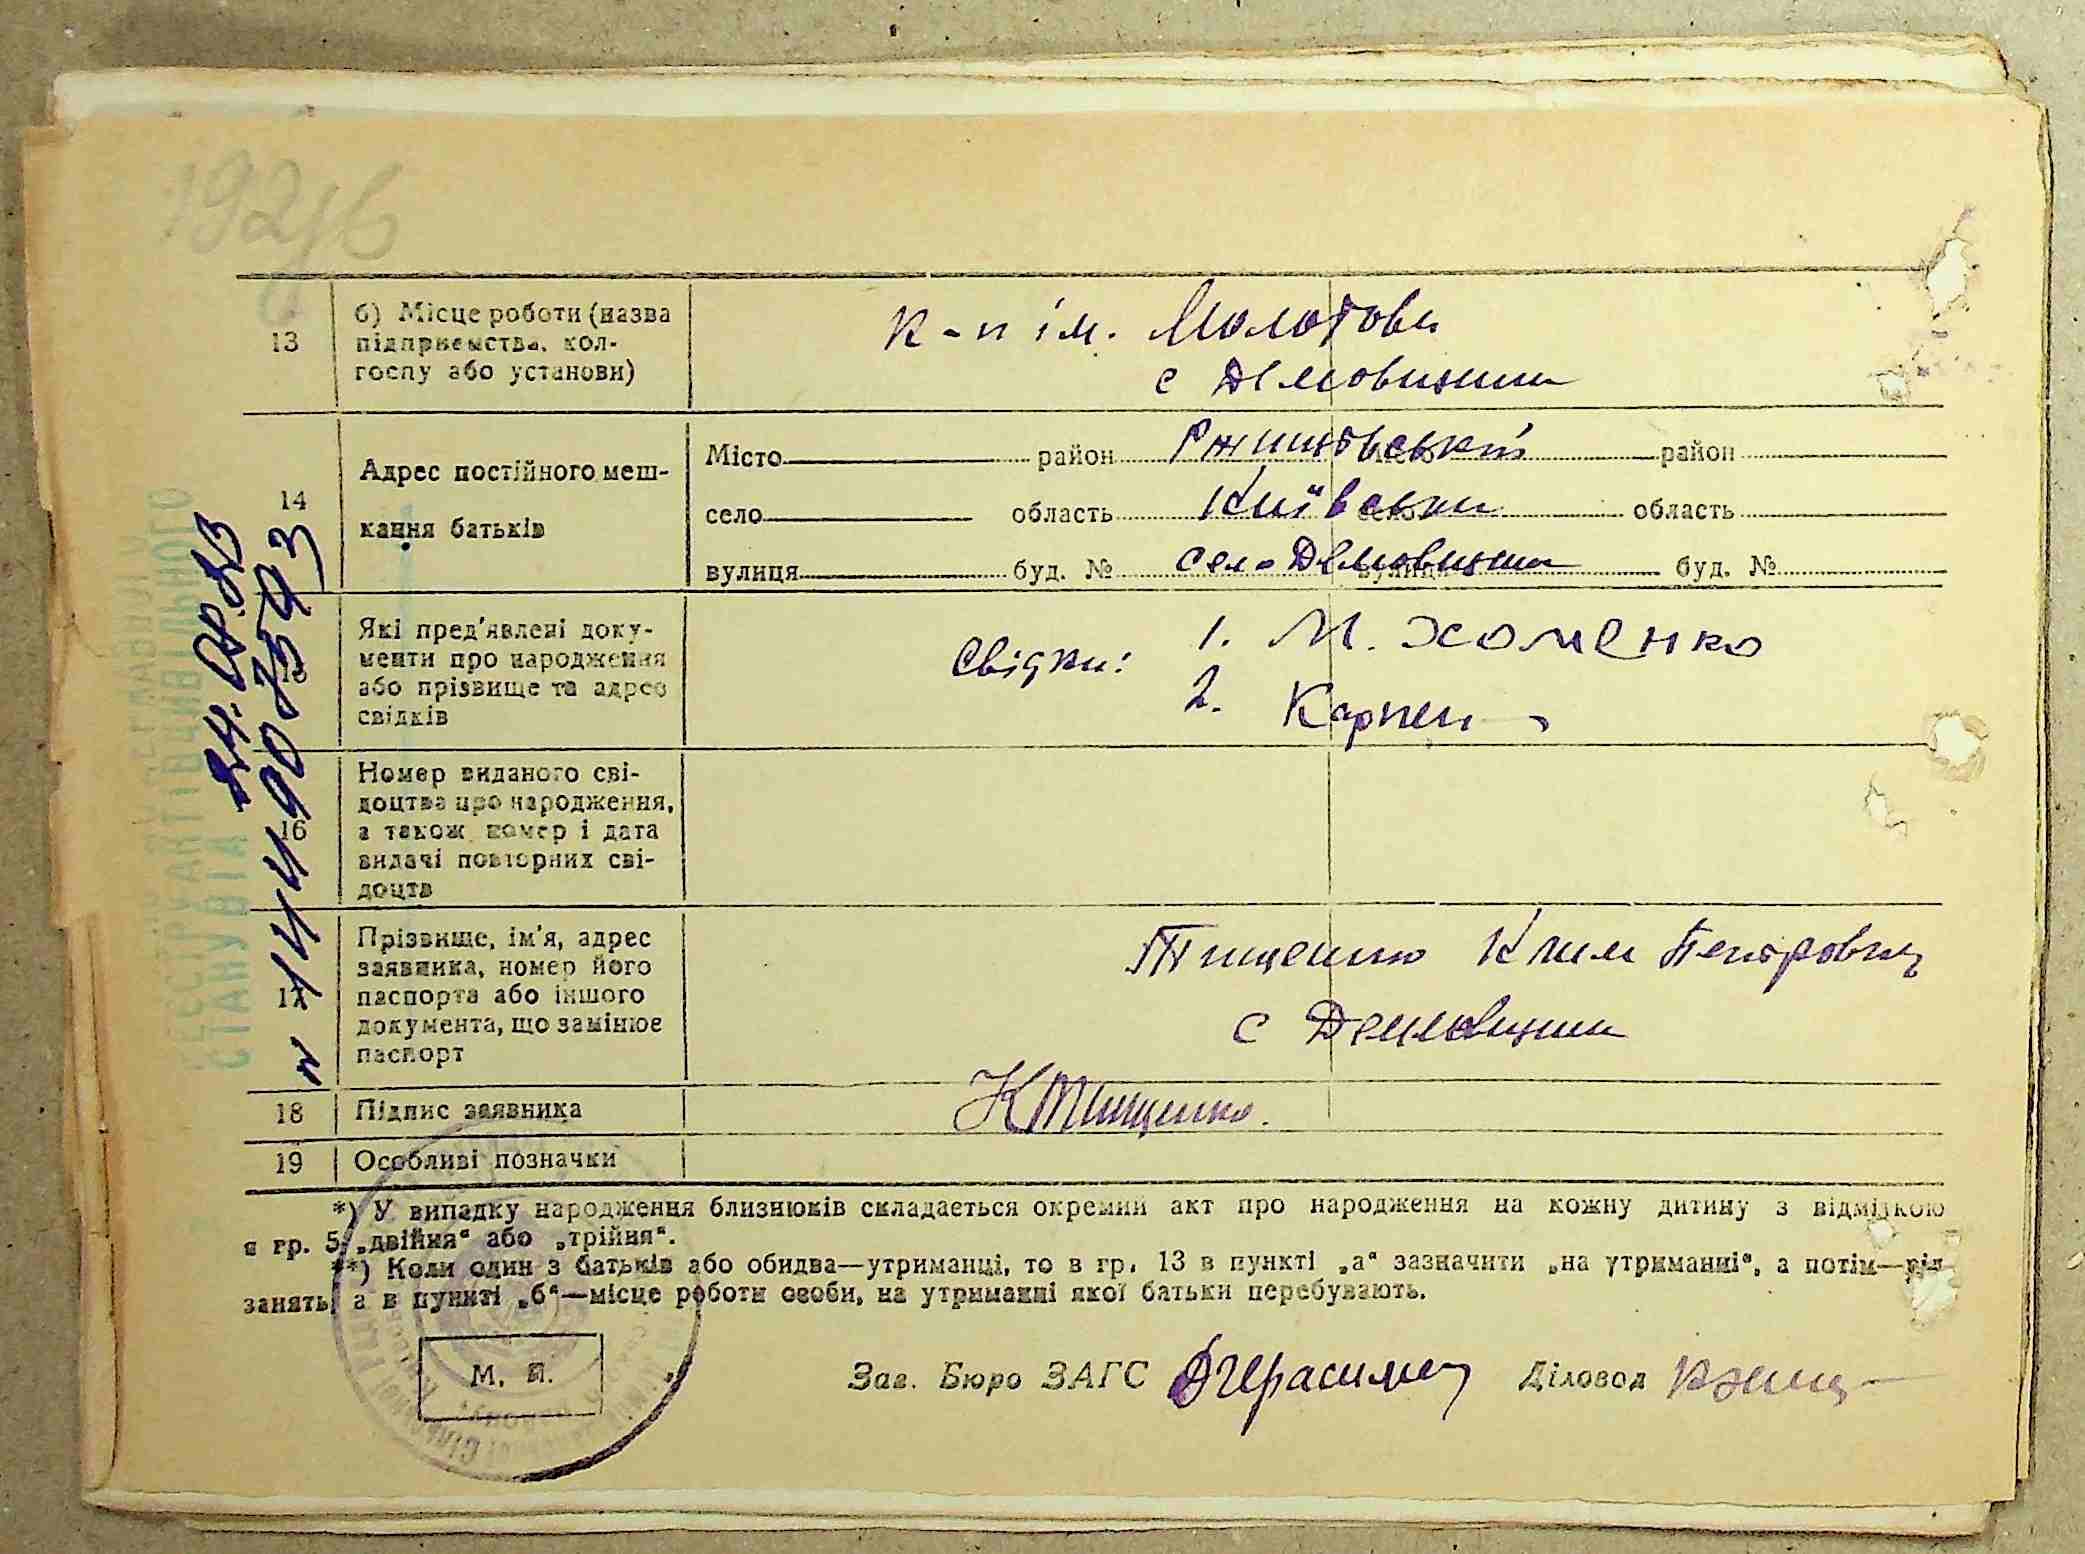 192
13
б) Місце роботи (назва
підприємства, кол-
госпу або установи)
к-п ім. Молотова
с Демовщина
14
Адрес постійного меш-
кання батьків
Місто район Ржищівський район
село область Київська область
вулиця буд. № село Демовщина буд. №
15
Які пред'явлені доку-
менти про народження
або прізвище та адрес
свідків
Свідки: 1. М. Хоменко
2. Карпен
16
Номер виданого сві-
доцтва про народження,
а також номер і дата
видачі повторних сві-
доцтв
17
Прізвище, ім'я, адрес
заявника, номер його
паспорта або іншого
документа, що замінює
паспорт
Тищенко Клим Петрович
с Демовщина
18 Підпис заявника
КТищенко.
19 Особливі позначки
*) У випадку народження близнюків складається окремий акт про народження на кожну дитину з відміткою
в гр. 5 „двійня“ або „трійня“.
**) Коли один з батьків або обидва—утриманці, то в гр. 13 в пункті „а“ зазначити „на утриманні“, а потім—рід
занять, а в пункті „б“—місце роботи особи, на утриманні якої батьки перебувають.
М. П.
Заг. Бюро ЗАГС Діловод
СТАНУ